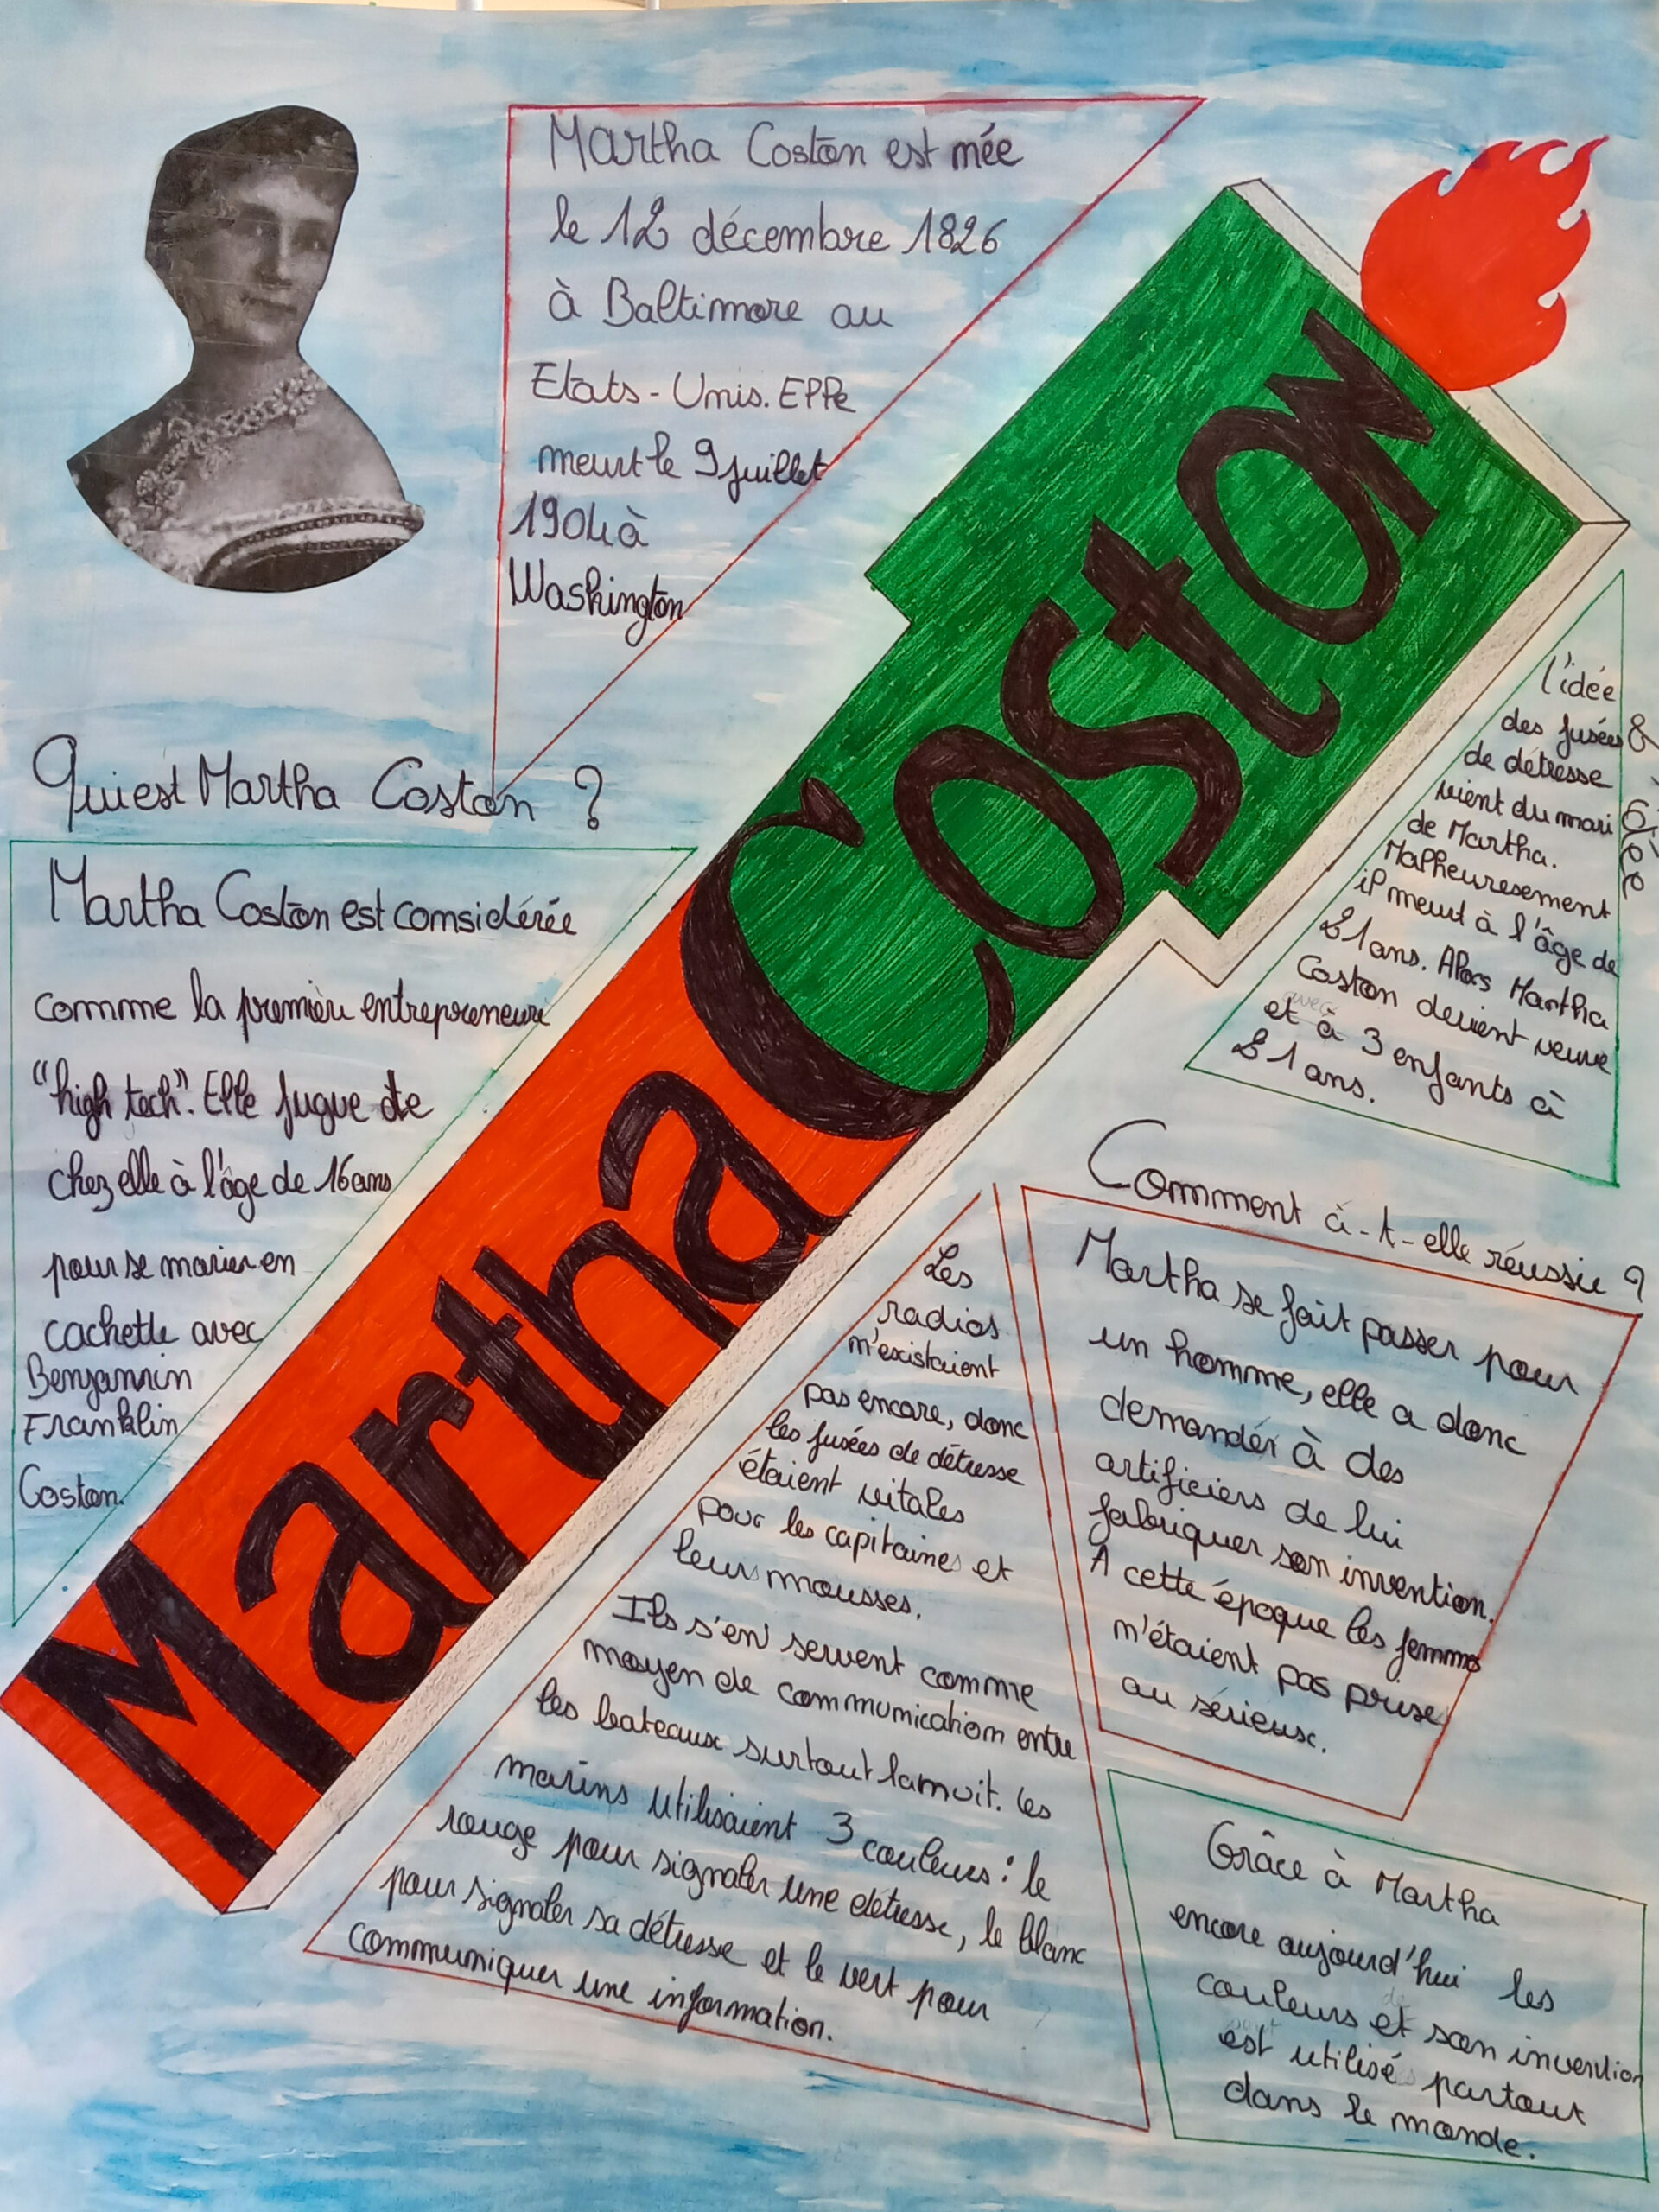 Martha Coston est née
le 12 décembre 1826
à Baltimore au
Etats-Unis. Elle
meurt le 9 juillet
1904 à
Washington
Qui est Martha Coston ?
Martha Coston est considérée
comme la première entrepreneure
"high tech". Elle fugue de
chez elle à l'âge de 16 ans
pour se marier en
cachette avec
Benjamin
Franklin
Coston.
Martha
Coston
l'idée
des fusées
de détresse
vient du mari
de Martha.
Malheuresement
il meurt à l'âge de
21 ans. Alors Martha
Coston devient veuve
avec
et à 3 enfants à
21 ans.
idée
Comment à-t-elle réussie ?
Martha se fait passer pour
un homme, elle a donc
demandér à des
artificiers de lui
fabriquer son invention.
A cette époque les femmes
n'étaient pas prises
au sérieux.
Les
radios
n'existaient
pas encore, donc
les fusées de détresse
étaient vitales
pour les capitaines et
leurs mousses.
Ils s'en servent comme
moyen de communication entre
les bateaux surtout la nuit. les
marins utilisaient 3 couleurs : le
rouge pour signaler une détresse, le blanc
pour signaler sa détresse et le vert pour
communiquer une information.
Grâce à Martha
encore aujourd'hui les
couleurs et son invention
est utilisé partout
dans le monde.